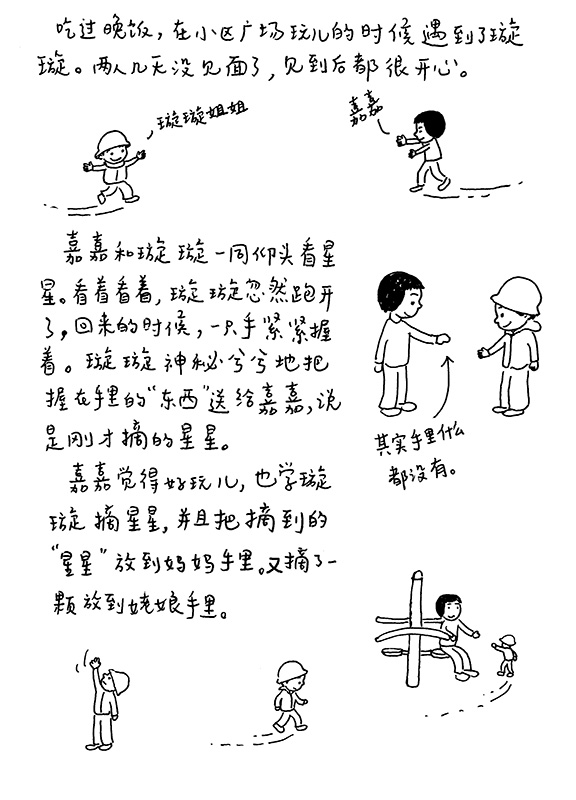 吃过晚饭，在小区广场玩儿的时候遇到了璇
璇。两人几天没见面了，见到后都很开心。
璇璇姐姐
嘉嘉
嘉嘉和璇璇一同仰头看星
星。看着看着，璇璇忽然跑开
了，回来的时候，一只手紧紧握
着。璇璇神秘兮兮地把
握在手里的“东西”送给嘉嘉，说
是刚才摘的星星。
其实手里什么
都没有。
嘉嘉觉得好玩儿，也学璇
璇摘星星，并且把摘到的
“星星”放到妈妈手里。又摘了一
颗放到姥娘手里。